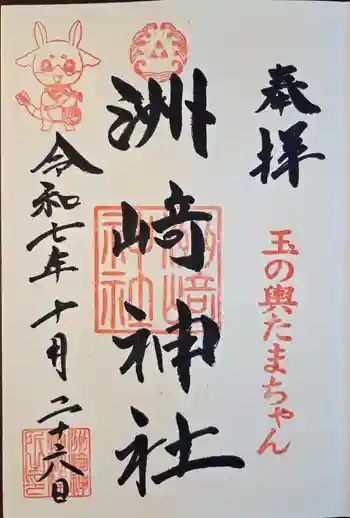 奉拝
玉の輿たまちゃん
洲﨑神社
令和七年十月二十六日
洲﨑神社